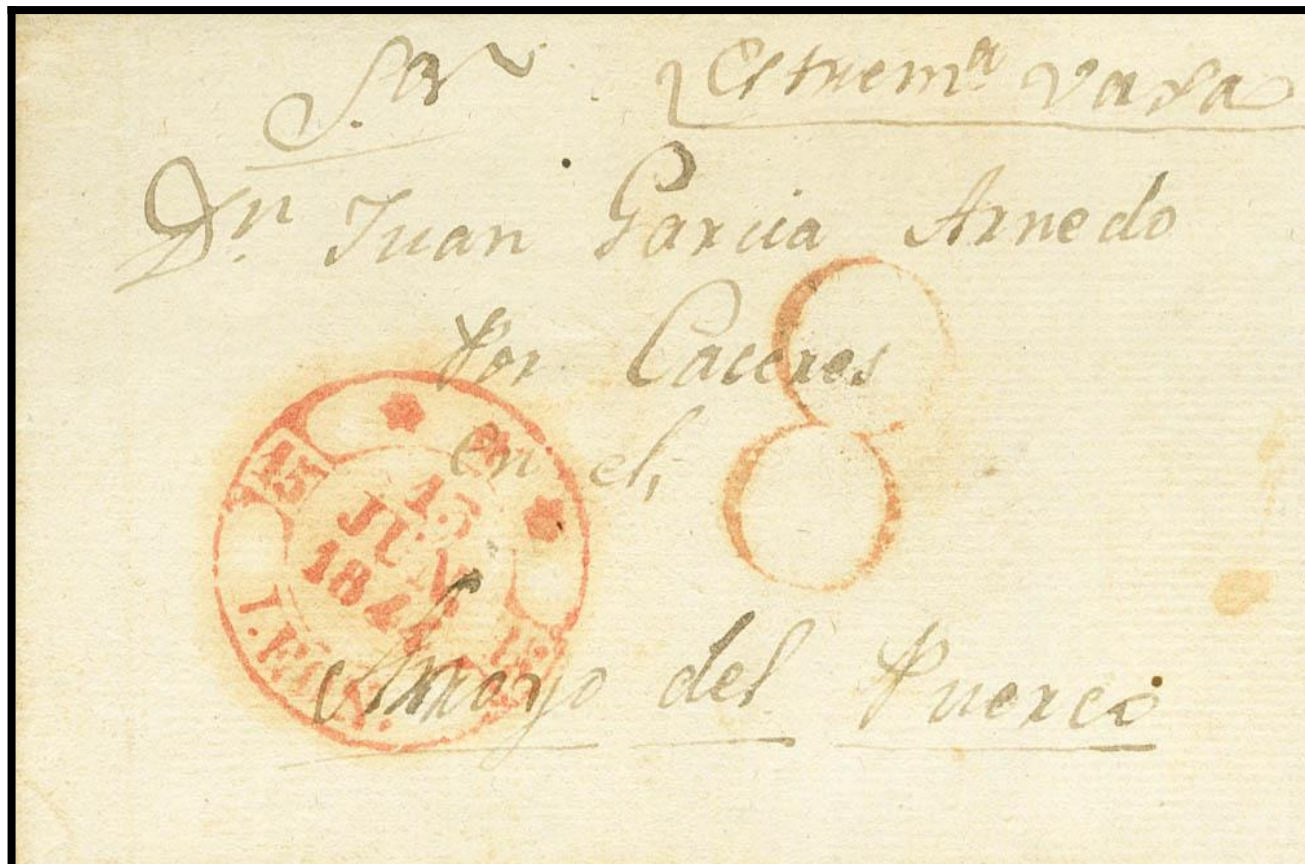 Sor Estrem.ª vaxa
Dn. Juan Garcia Arnedo
Por Caceres
en el,
8
15
JUN.
1844
Arroyo del Puerco